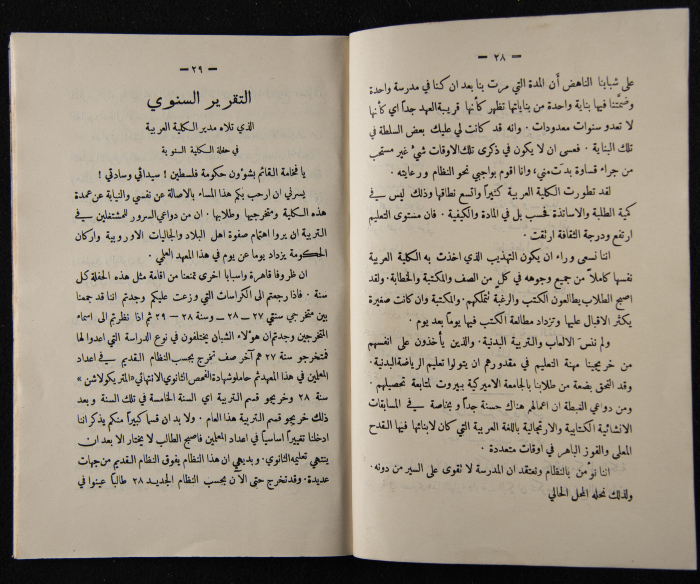 — ٢٨ —
على شبابنا الناهض أن المدة التي مرت بنا بعد ان كنا في مدرسة واحدة
وضمتنا فيها بناية واحدة من بناياتها تظهر كأنها قريبة العهد جداً اي كأنها
لا تعدو سنوات معدودات . وانه قد كانت لي عليك بعض السلطة في
تلك البناية . فعسى ان لا يكون في ذكرى تلك الاوقات شيء غير مستحب
من جراء قساوة بدت مني، وانا اقوم بواجبي نحو النظام ورعايته .
لقد تطورت الكلية العربية كثيراً واتسع نطاقها وذلك ليس في
كمية الطلبة والاساتذة فحسب بل في المادة والكيفية . فان مستوى التعليم
ارتفع ودرجة الثقافة ارتقت .
اننا نسعى وراء ان يكون التهذيب الذي اخذت به الكلية العربية
نفسها كاملاً من جميع وجوهه في كل من الصف والمكتبة والخطابة . ولقد
اصبح الطلاب يطالعون الكتب والرغبة تتملكهم. والمكتبة وان كانت صغيرة
يكثر الاقبال عليها وتزداد مطالعة الكتب فيها يوماً بعد يوم .
ولم ننس الالعاب والتربية البدنية . والذين يأخذون على انفسهم
من خريجينا مهنة التعليم في مقدورهم ان يتولوا تعليم الرياضة البدنية .
وقد التحق بضعة من طلابنا بالجامعة الاميركية ببيروت لمتابعة تحصيلهم .
ومن دواعي الغبطة ان اعمالهم هناك حسنة جداً وبخاصة في المسابقات
الانشائية الكتابية والارتجالية باللغة العربية التي كان لابنائها فيها القدح
المعلى والفوز الباهر في اوقات متعددة .
اننا نؤمن بالنظام ونعتقد ان المدرسة لا تقوى على السير من دونه .
ولذلك نحله المحل الحالي
— ٢٩ —
التقرير السنوي
الذي تلاه مدير الكلية العربية
في حفلة الكلية السنوية
يا فخامة القائم بشؤون حكومة فلسطين ! سيداتي وسادتي !
يسرني ان ارحب بكم هذا المساء بالاصالة عن نفسي والنيابة عن عمدة
هذه الكلية ومتخرجيها وطلابها . ان من دواعي السرور للمشتغلين في
التربية ان يروا اهتمام صفوة اهل البلاد والجاليات الاوروبية واركان
الحكومة يزداد يوما عن يوم في هذا المعهد العلمي .
ان ظروفا قاهرة واسبابا اخرى تمنعنا من اقامة مثل هذه الحفلة كل
سنة . فاذا رجعتم الى الكراسات التي وزعت عليكم وجدتم اننا قد جمعنا
بين متخرجي سنتي ٢٧ ــ ٢٨ وسنة ٢٨ ــ ٢٩ ثم اذا نظرتم الى اسماء
المتخرجين وجدتم ان هؤلاء الشبان يختلفون في نوع الدراسة التي اعدوا لها
فمتخرجو سنة ٢٧ هم آخر صف تخرج بحسب النظام القديم في اعداد
المعلمين في هذا المعهد ثم حاملو شهادة الفحص الثانوي الانتهائي «المتريكولاشن»
سنة ٢٨ وخريجو قسم التربية اي السنة الخامسة في تلك السنة وبعد
ذلك خريجو قسم التربية هذا العام . ولا بد ان قسما كبيراً منكم يذكر اننا
ادخلنا تغييراً اساسياً في اعداد المعلمين فاصبح الطالب لا يختار الا بعد ان
ينتهي تعليمه الثانوي. وبديهي ان هذا النظام يفوق النظام القديم من جهات
عديدة . وقد تخرج حتى الآن بحسب النظام الجديد ٢٨ طالباً عينوا في